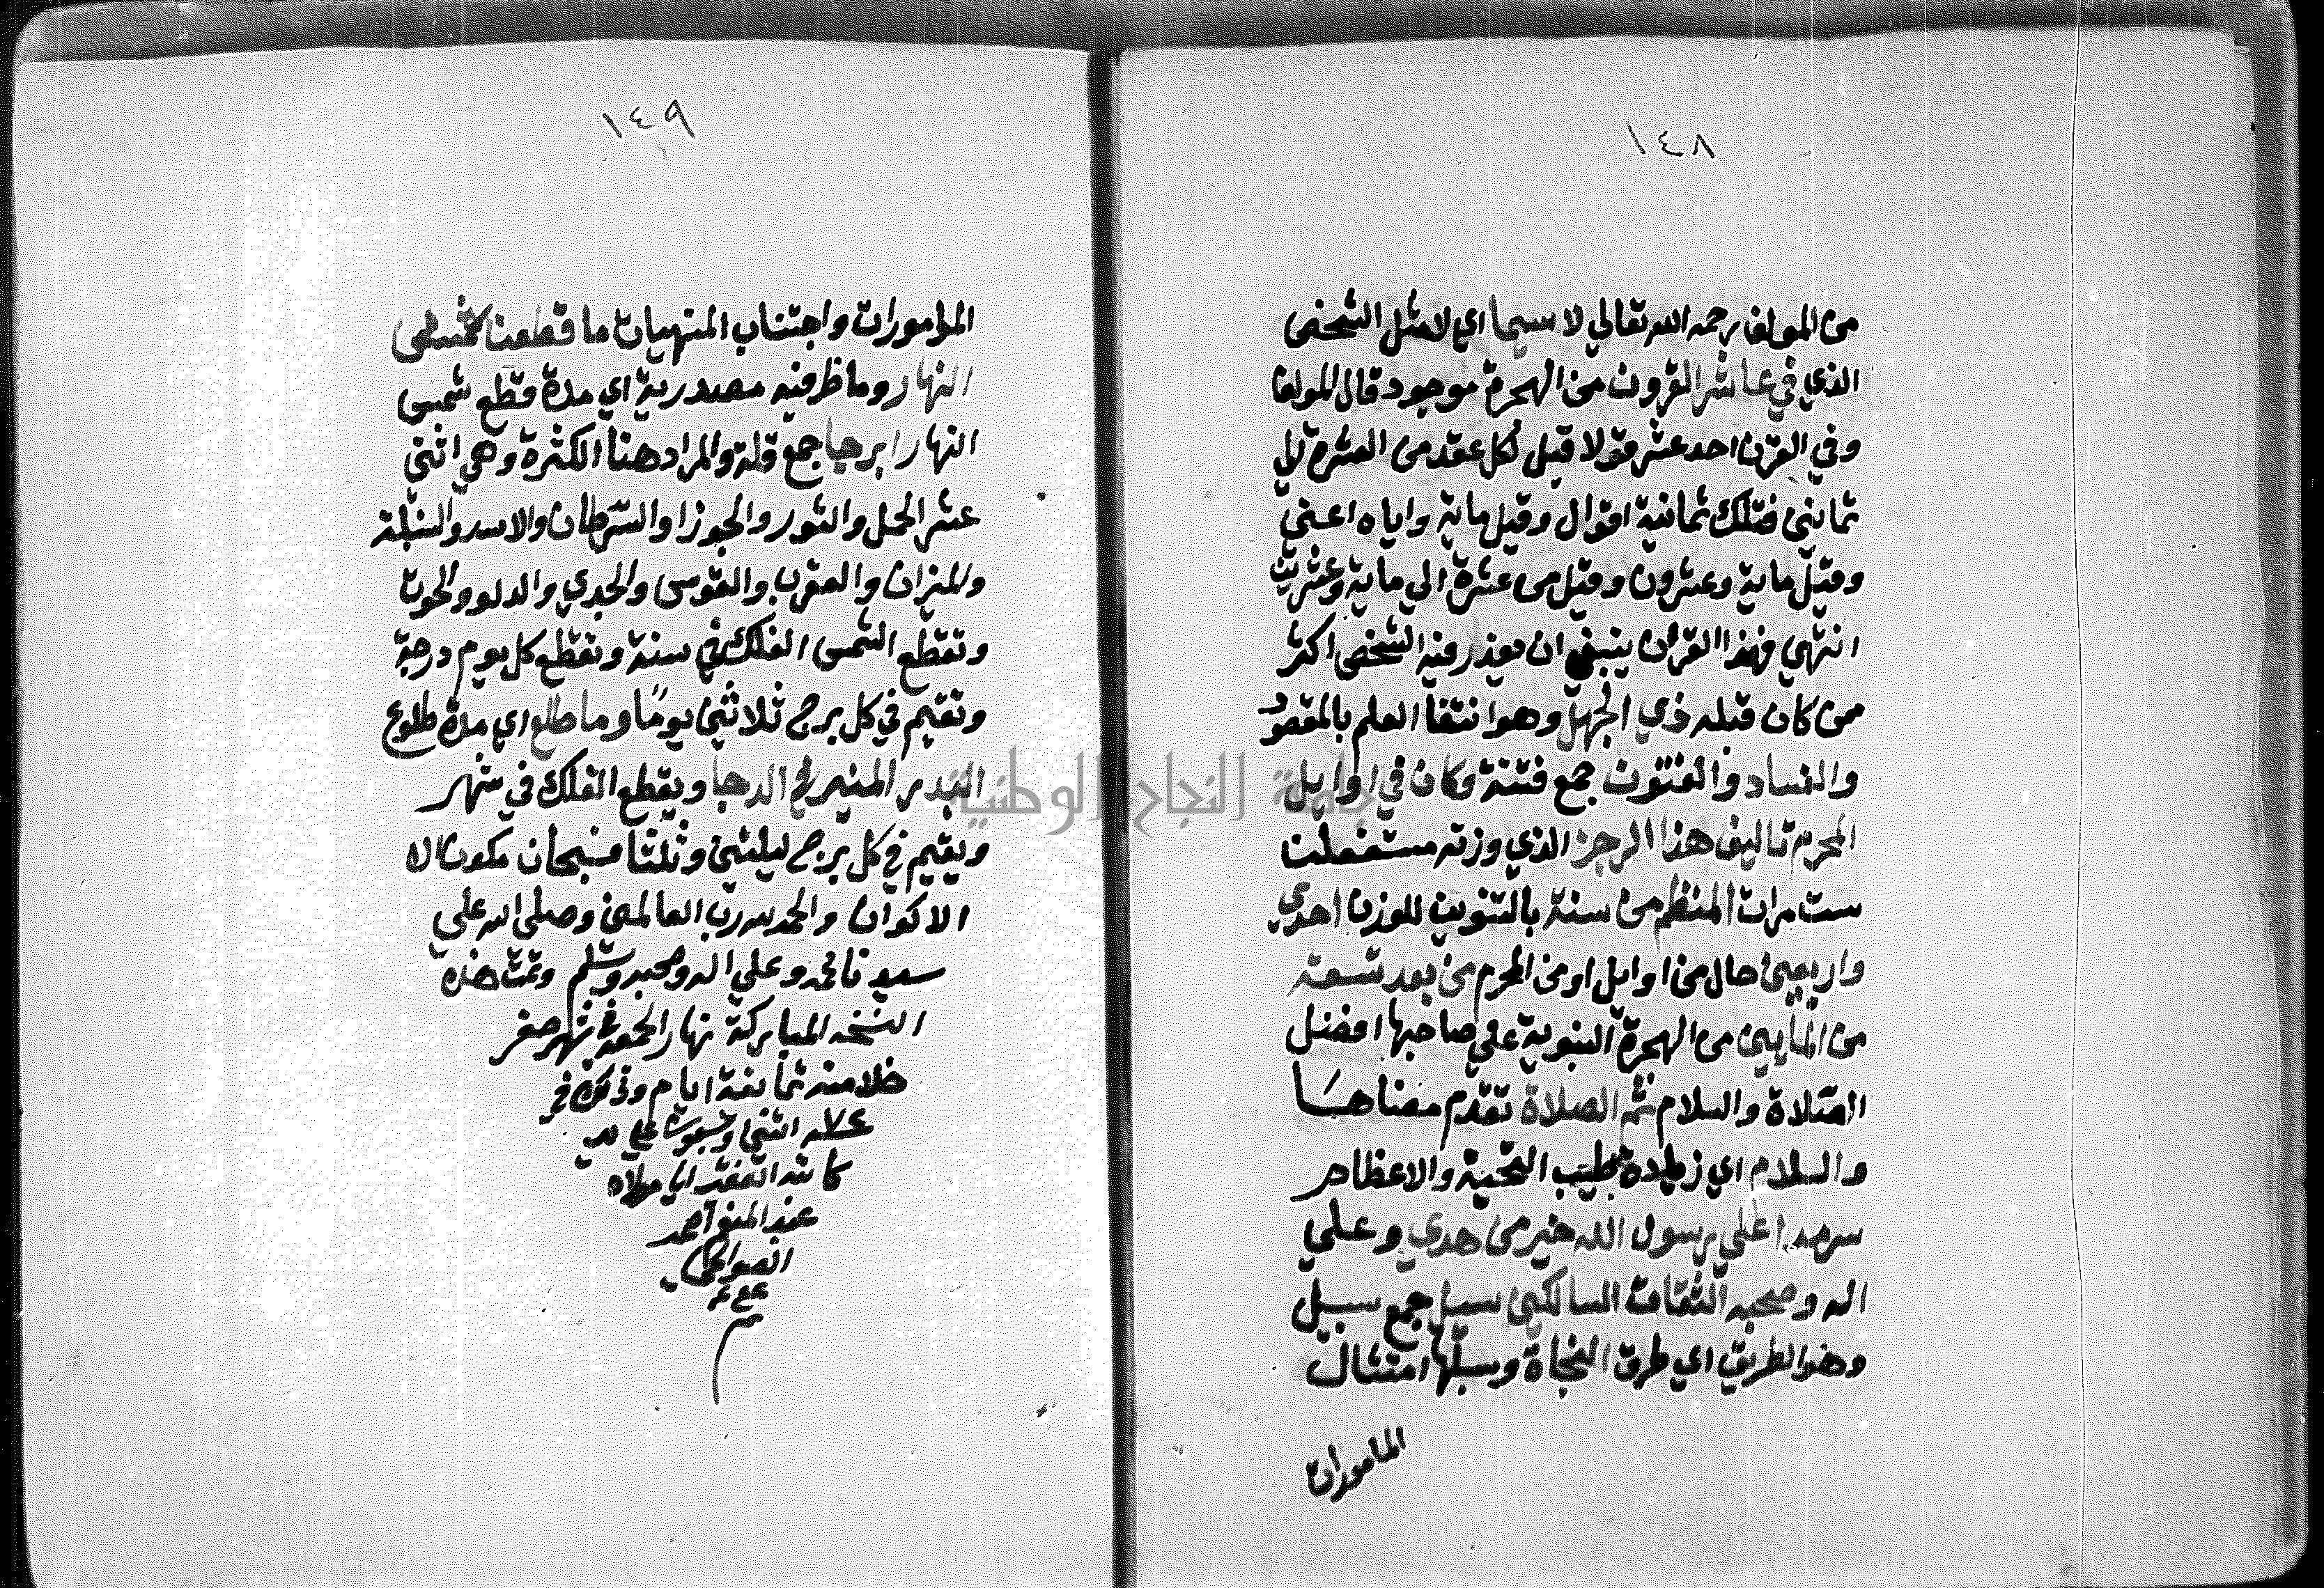 ١٤٨
من المولف رحمه الله تعالي لا سيما اي لا مثل الشخص
الذي في عاشر القرون من الهجرة موجود قال المولف
وفي القرن احد عشر قولا قيل لكل عقد من العشرة الي
ثمانين فتلك ثمانية اقوال وقيل ماية واياه اعني
وقيل ماية وعشرون وقيل من عشرة الي ماية وعشرين
انتهي فهذا القرن ينبغي ان يعذر فيه الشخص اكثر
ممن كان قبله ذي الجهل وهو انتفا العلم بالمقصود
والفساد والفتون جمع فتنة وكان في اوايل
المحرم تاليف هذا الرجز الذي وزنه مستفعلن
ست مرات المنظم من سنة بالتنوين للوزن احدي
واربعين حال من اوايل او من المحرم من بعد تسعة
من المايين من الهجرة النبوية علي صاحبها افضل
الصلاة والسلام ثم الصلاة تقدم معناها
والسلام اي زيادة طيب التحية والاعظام
سرمدا علي رسول الله خير من هدي وعلي
اله وصحبه الثقات السالكين سبيل جمع سبيل
وهو الطريق اي طرق النجاة وسبلها امتثال
المامورات
١٤٩
المامورات واجتناب المنهيات ما قطعت شمس
النهار وما ظرفيه مصدرية اي مدة قطع شمس
النهار ابرجا جمع قلة والمراد هنا الكثرة وهي اثني
عشر الحمل والثور والجوزا والسرطان والاسد والسنبلة
والميزان والعقرب والقوس والجدي والدلو والحوت
وتقطع الشمس الفلك في سنة وتقطع كل يوم درجة
وتقيم في كل برج ثلاثين يومًا وما طلع اي مدة طلوع
البدر المنير في الدجا ويقطع الفلك في شهر
ويقيم في كل برج ليلتين وثلثا فسبحان مكون الا
الاكوان والحمد لله رب العالمين وصلي الله علي
سيدنا محمد وعلي اله وصحبه وسلم وتمت هذه
النسخه المباركة نهار الجمعة في شهر صفر
خلا منه ثمانية ايام وذلك في
اثنين وسبعون علي يد
كاتبه الفقير الي مولاه
احمد